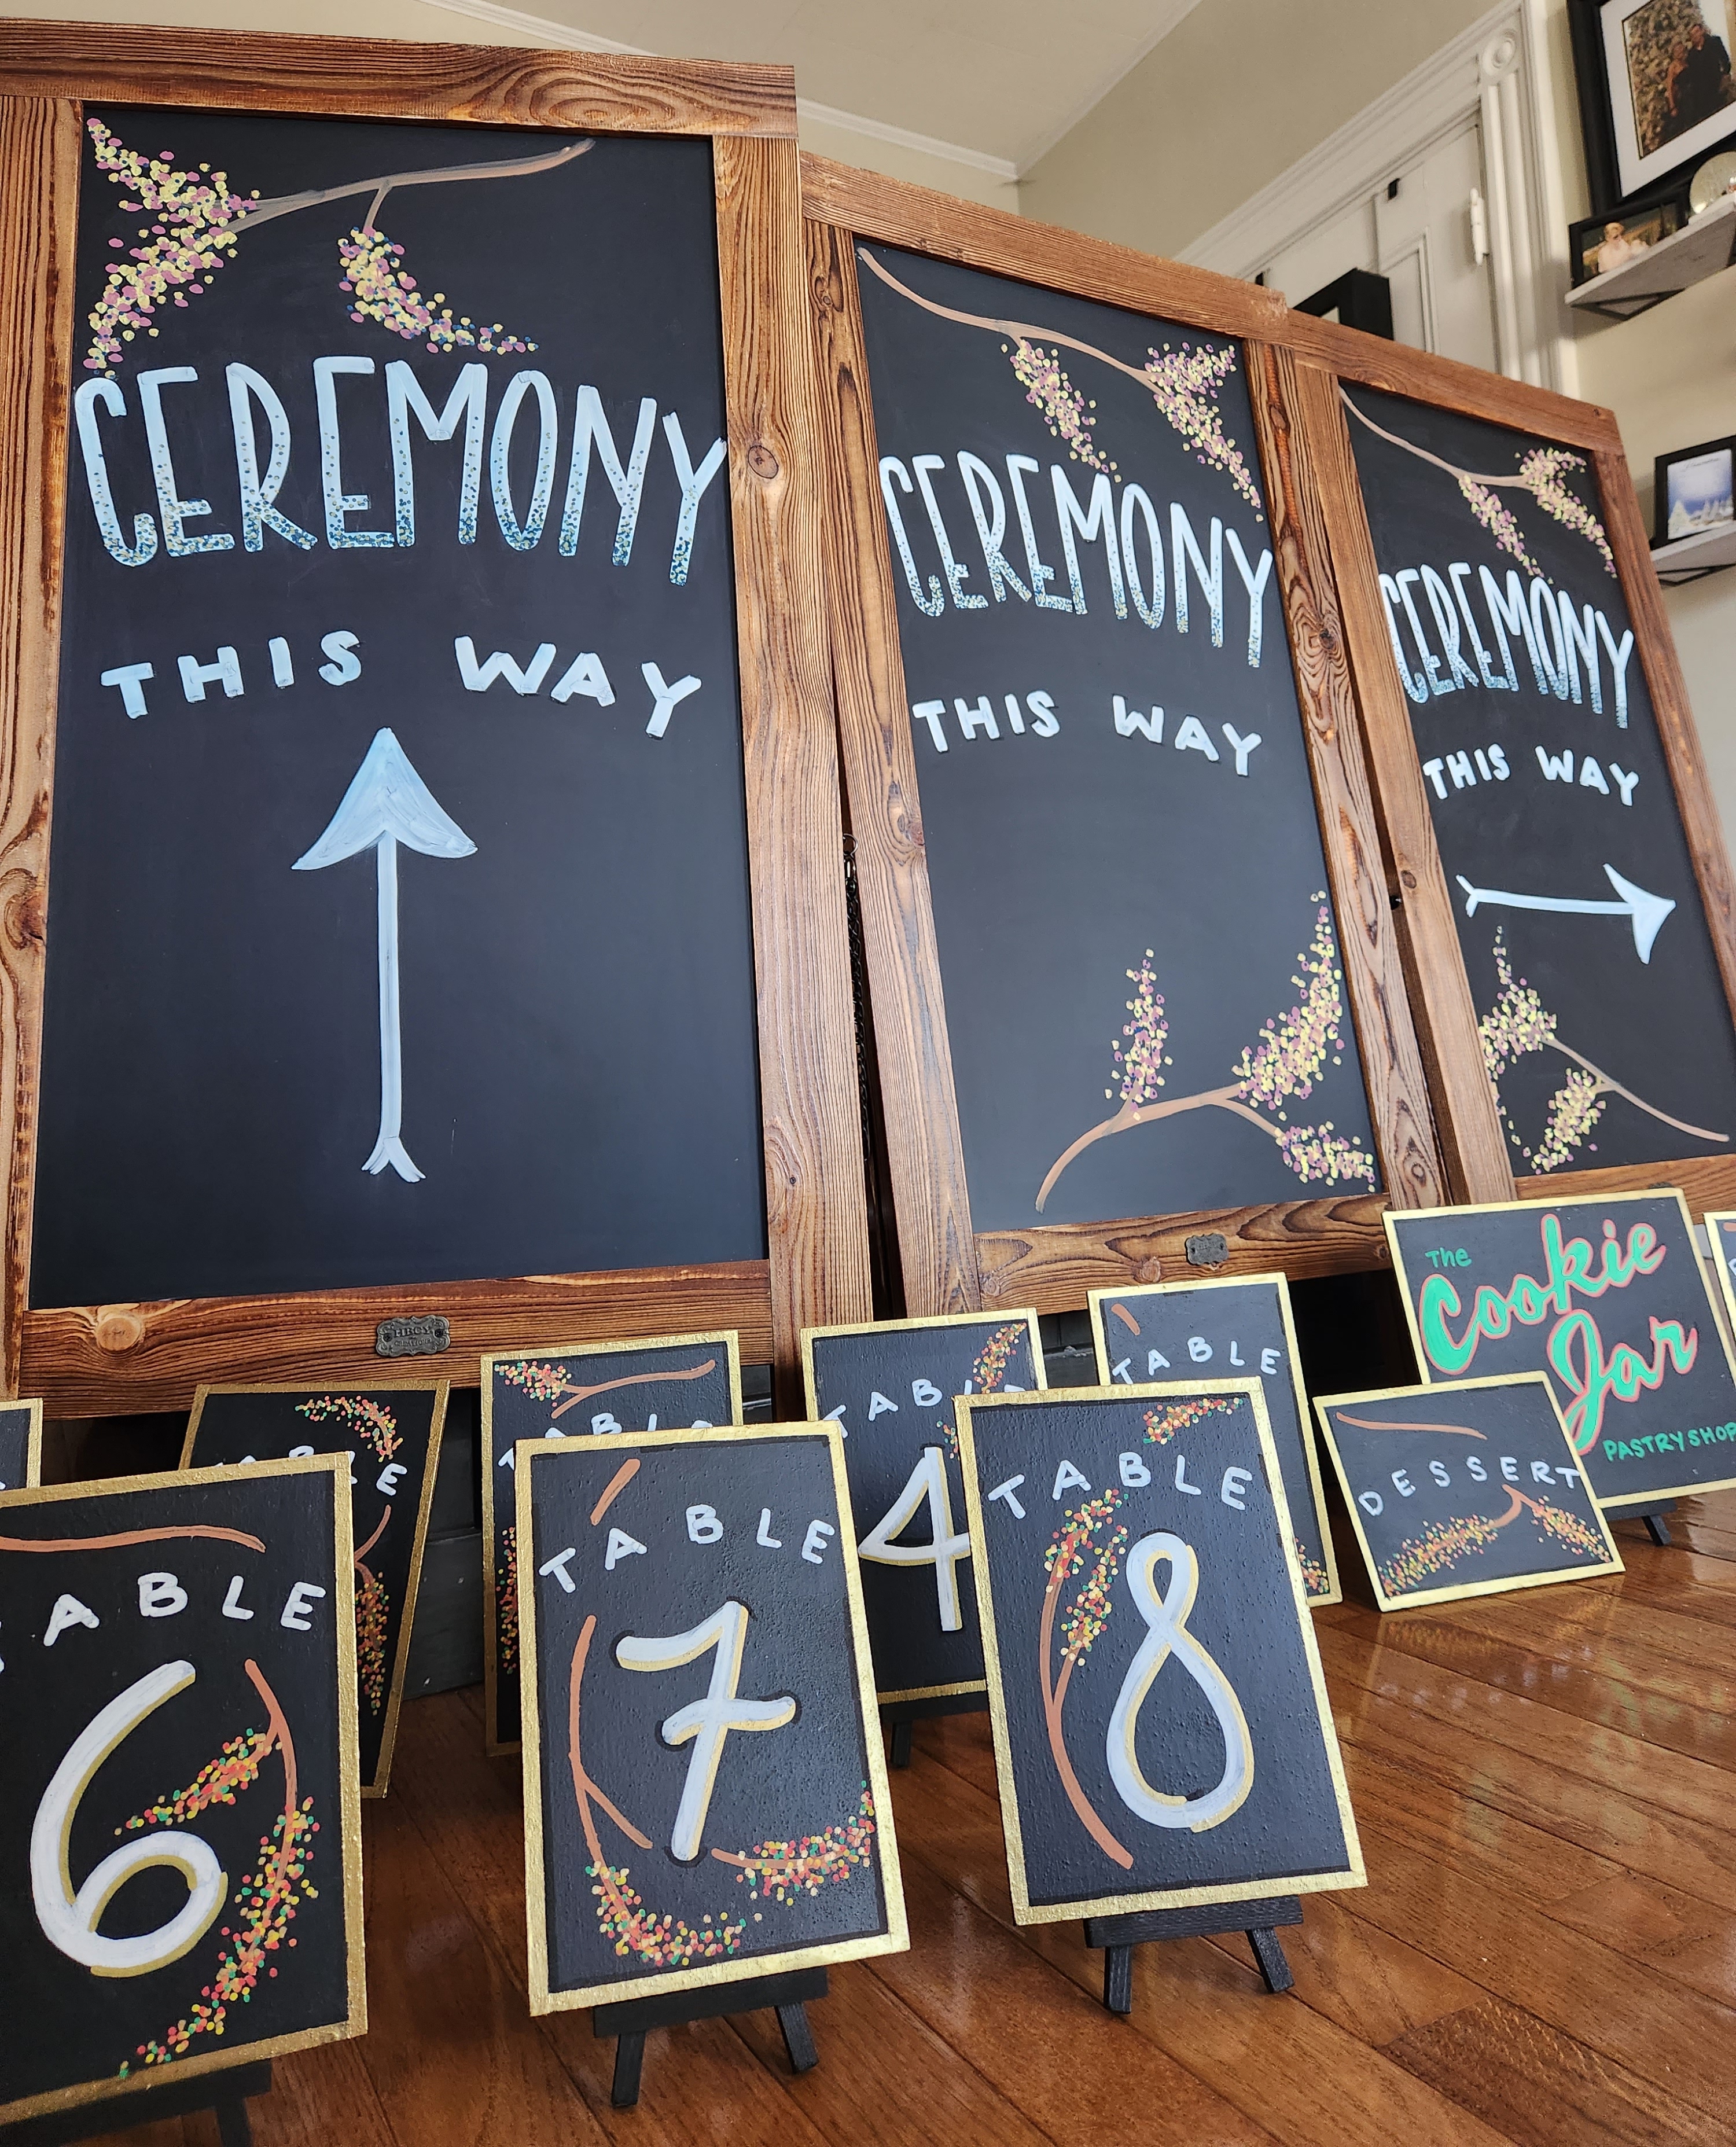 CEREMONY
THIS WAY
CEREMONY
THIS WAY
CEREMONY
THIS WAY
The
Cookie
Jar
PASTRY SHOP
DESSERT
TABLE
TABLE
TABLE
TABLE
4
TABLE
TABLE
6
TABLE
7
TABLE
8